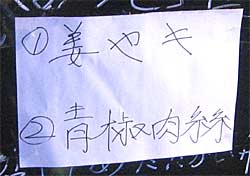 ①姜やキ
②青椒肉絲